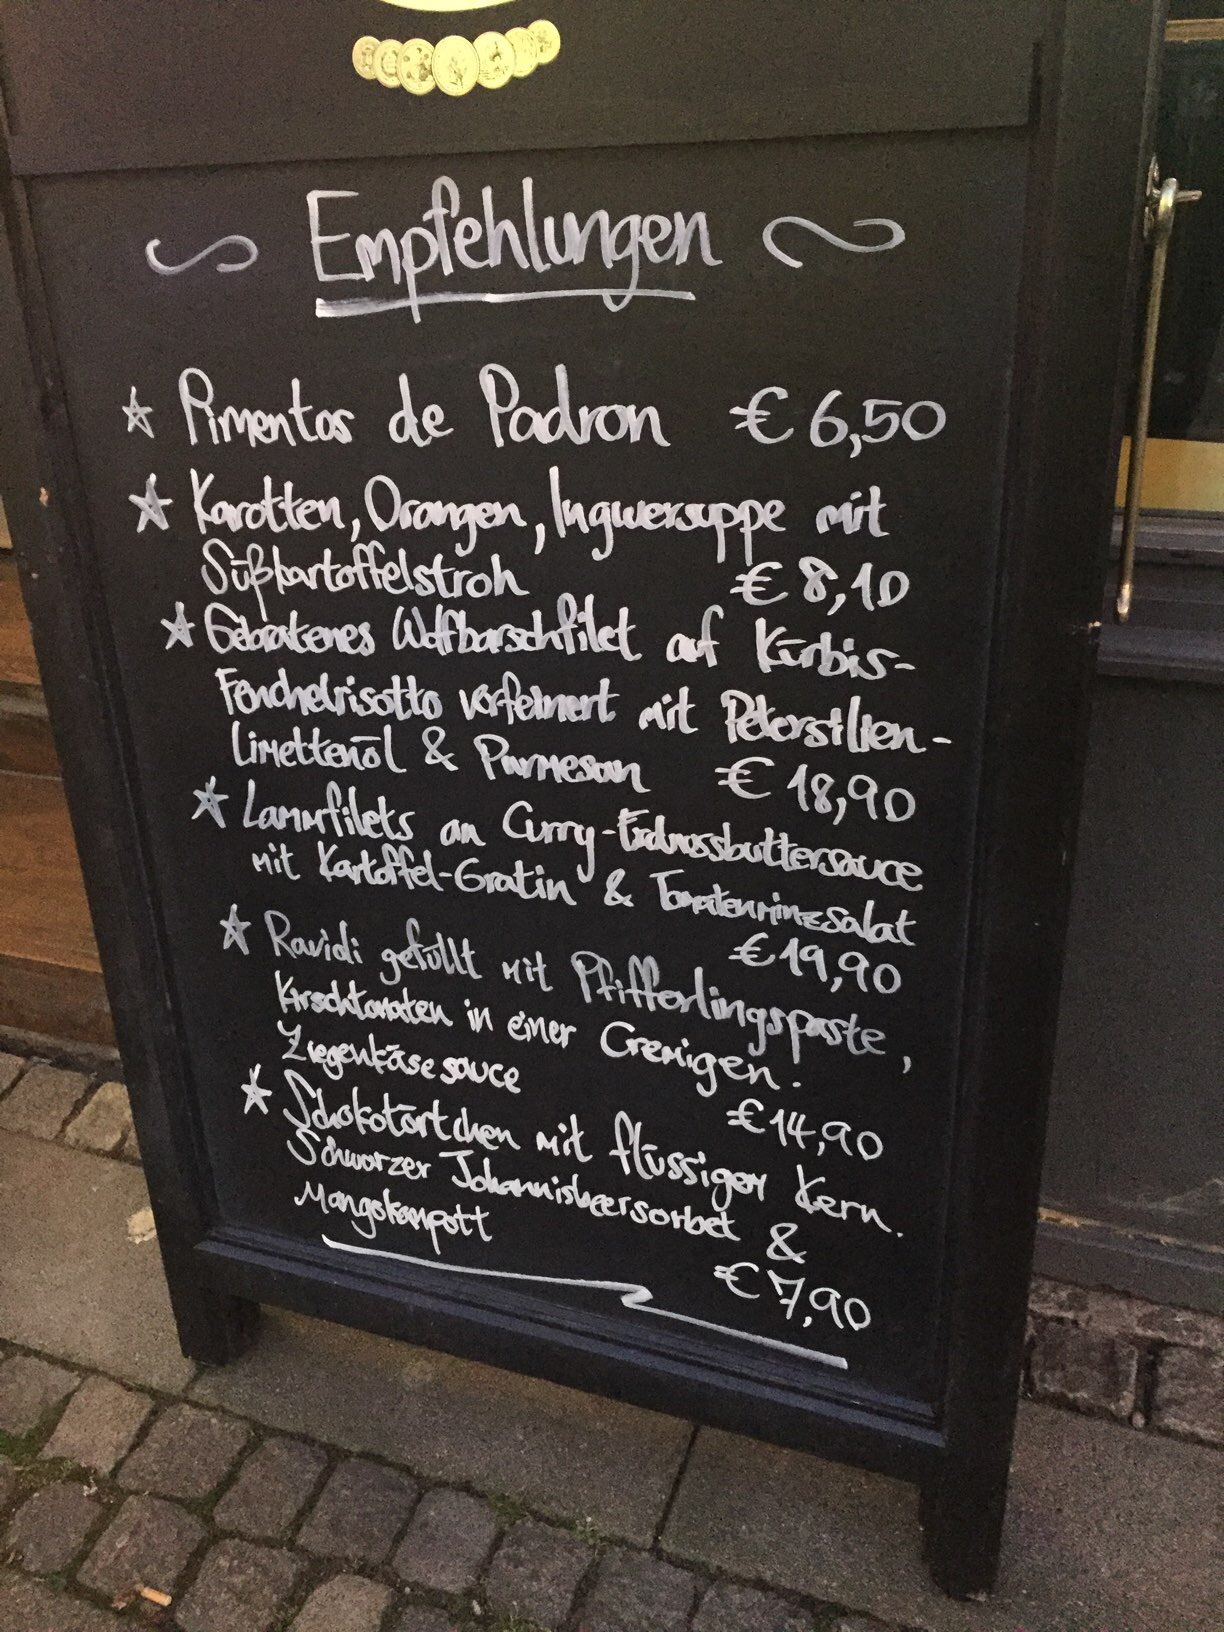 Empfehlungen
Pimentos de Padron € 6,50
Karotten, Orangen, Ingwersuppe mit
Süßkartoffelstroh € 8,10
Gebratenes Wolfbarschfilet auf Kürbis-
Fenchelrisotto verfeinert mit Petersilien-
Limettenöl & Parmesan € 18,90
Lammfilets an Curry-Erdnussbuttersauce
mit Kartoffel-Gratin & Tomatenminzsalat
€ 19,90
Ravioli gefüllt mit Pfifferlingspaste,
Kirschtomaten in einer Cremigen.
Ziegenkäsesauce
€ 14,90
Schokotörtchen mit flüssigem Kern.
Schwarzer Johannisbeersorbet &
Mangokompott
€ 7,90